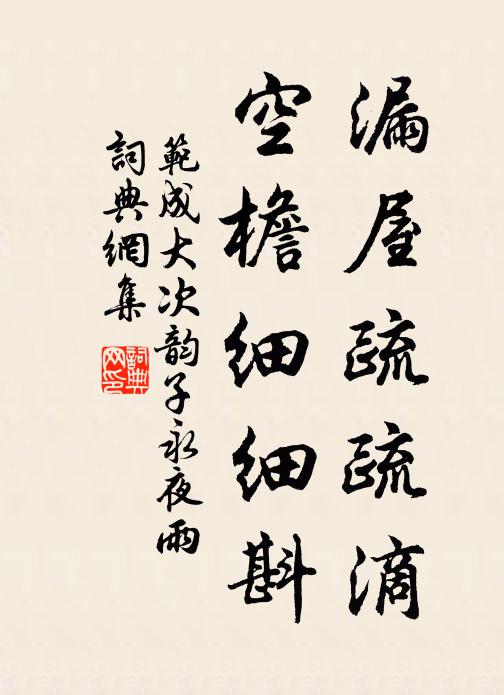 漏屋疏疏滴
空檐细细斟
範成大次韵子永夜雨
詞典網集
詞典网印